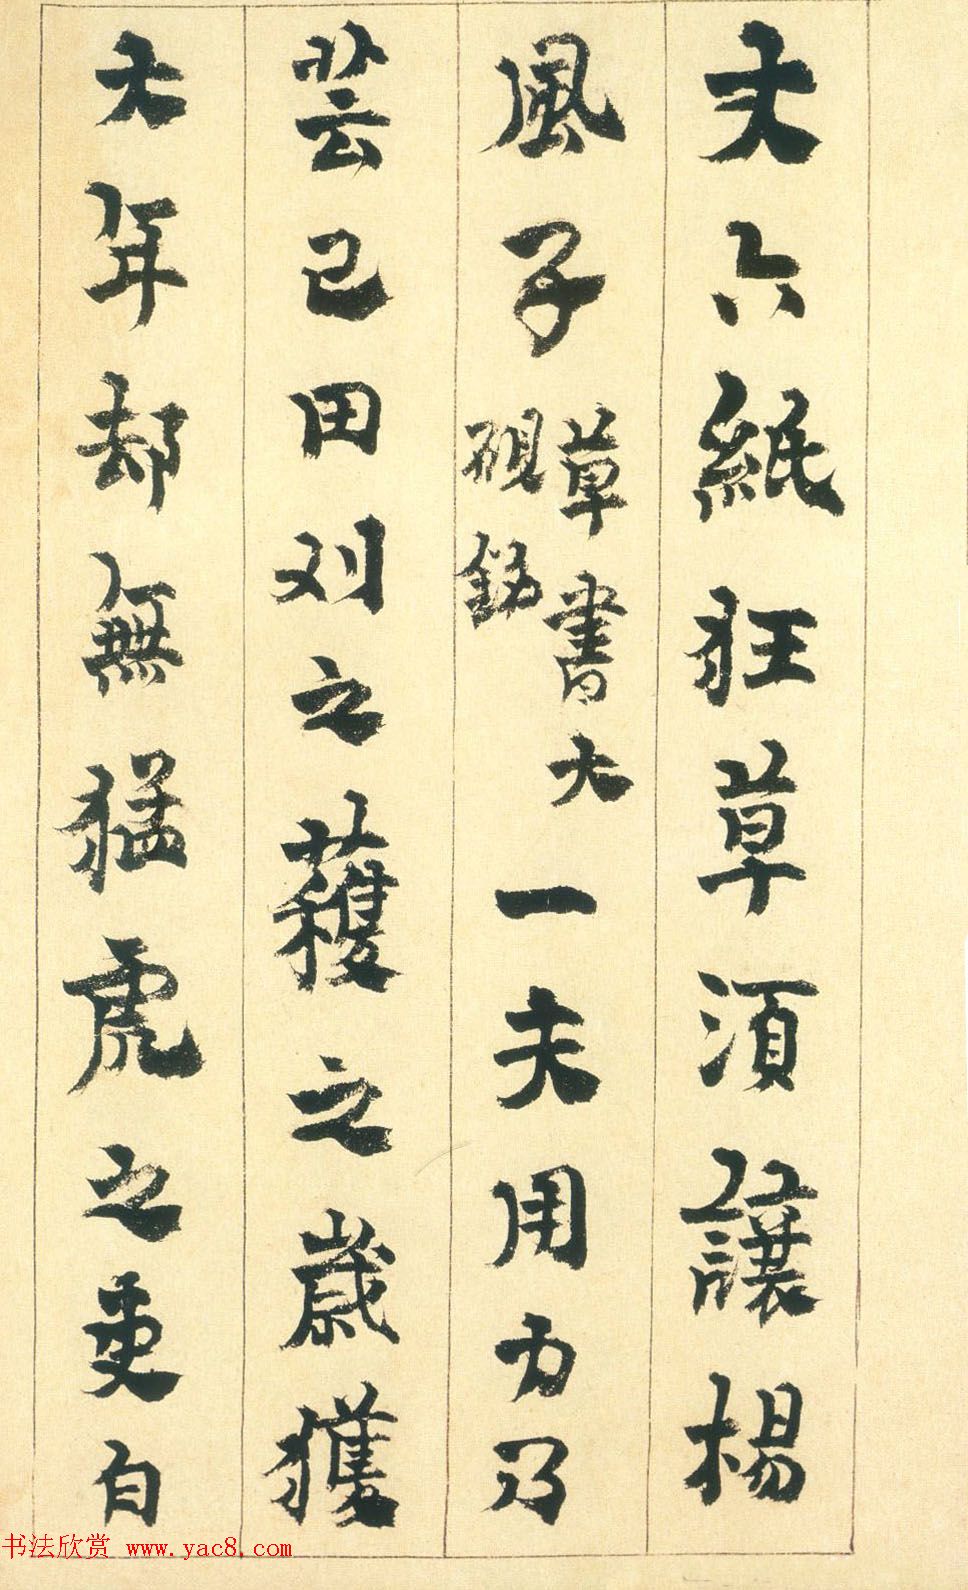 丈六紙狂草須讓楊
風子
草書大
硯銘
一夫用力乃
芸己田刈之穫之歲獲
大年却無猛虎之更自
书法欣赏 www.yac8.com